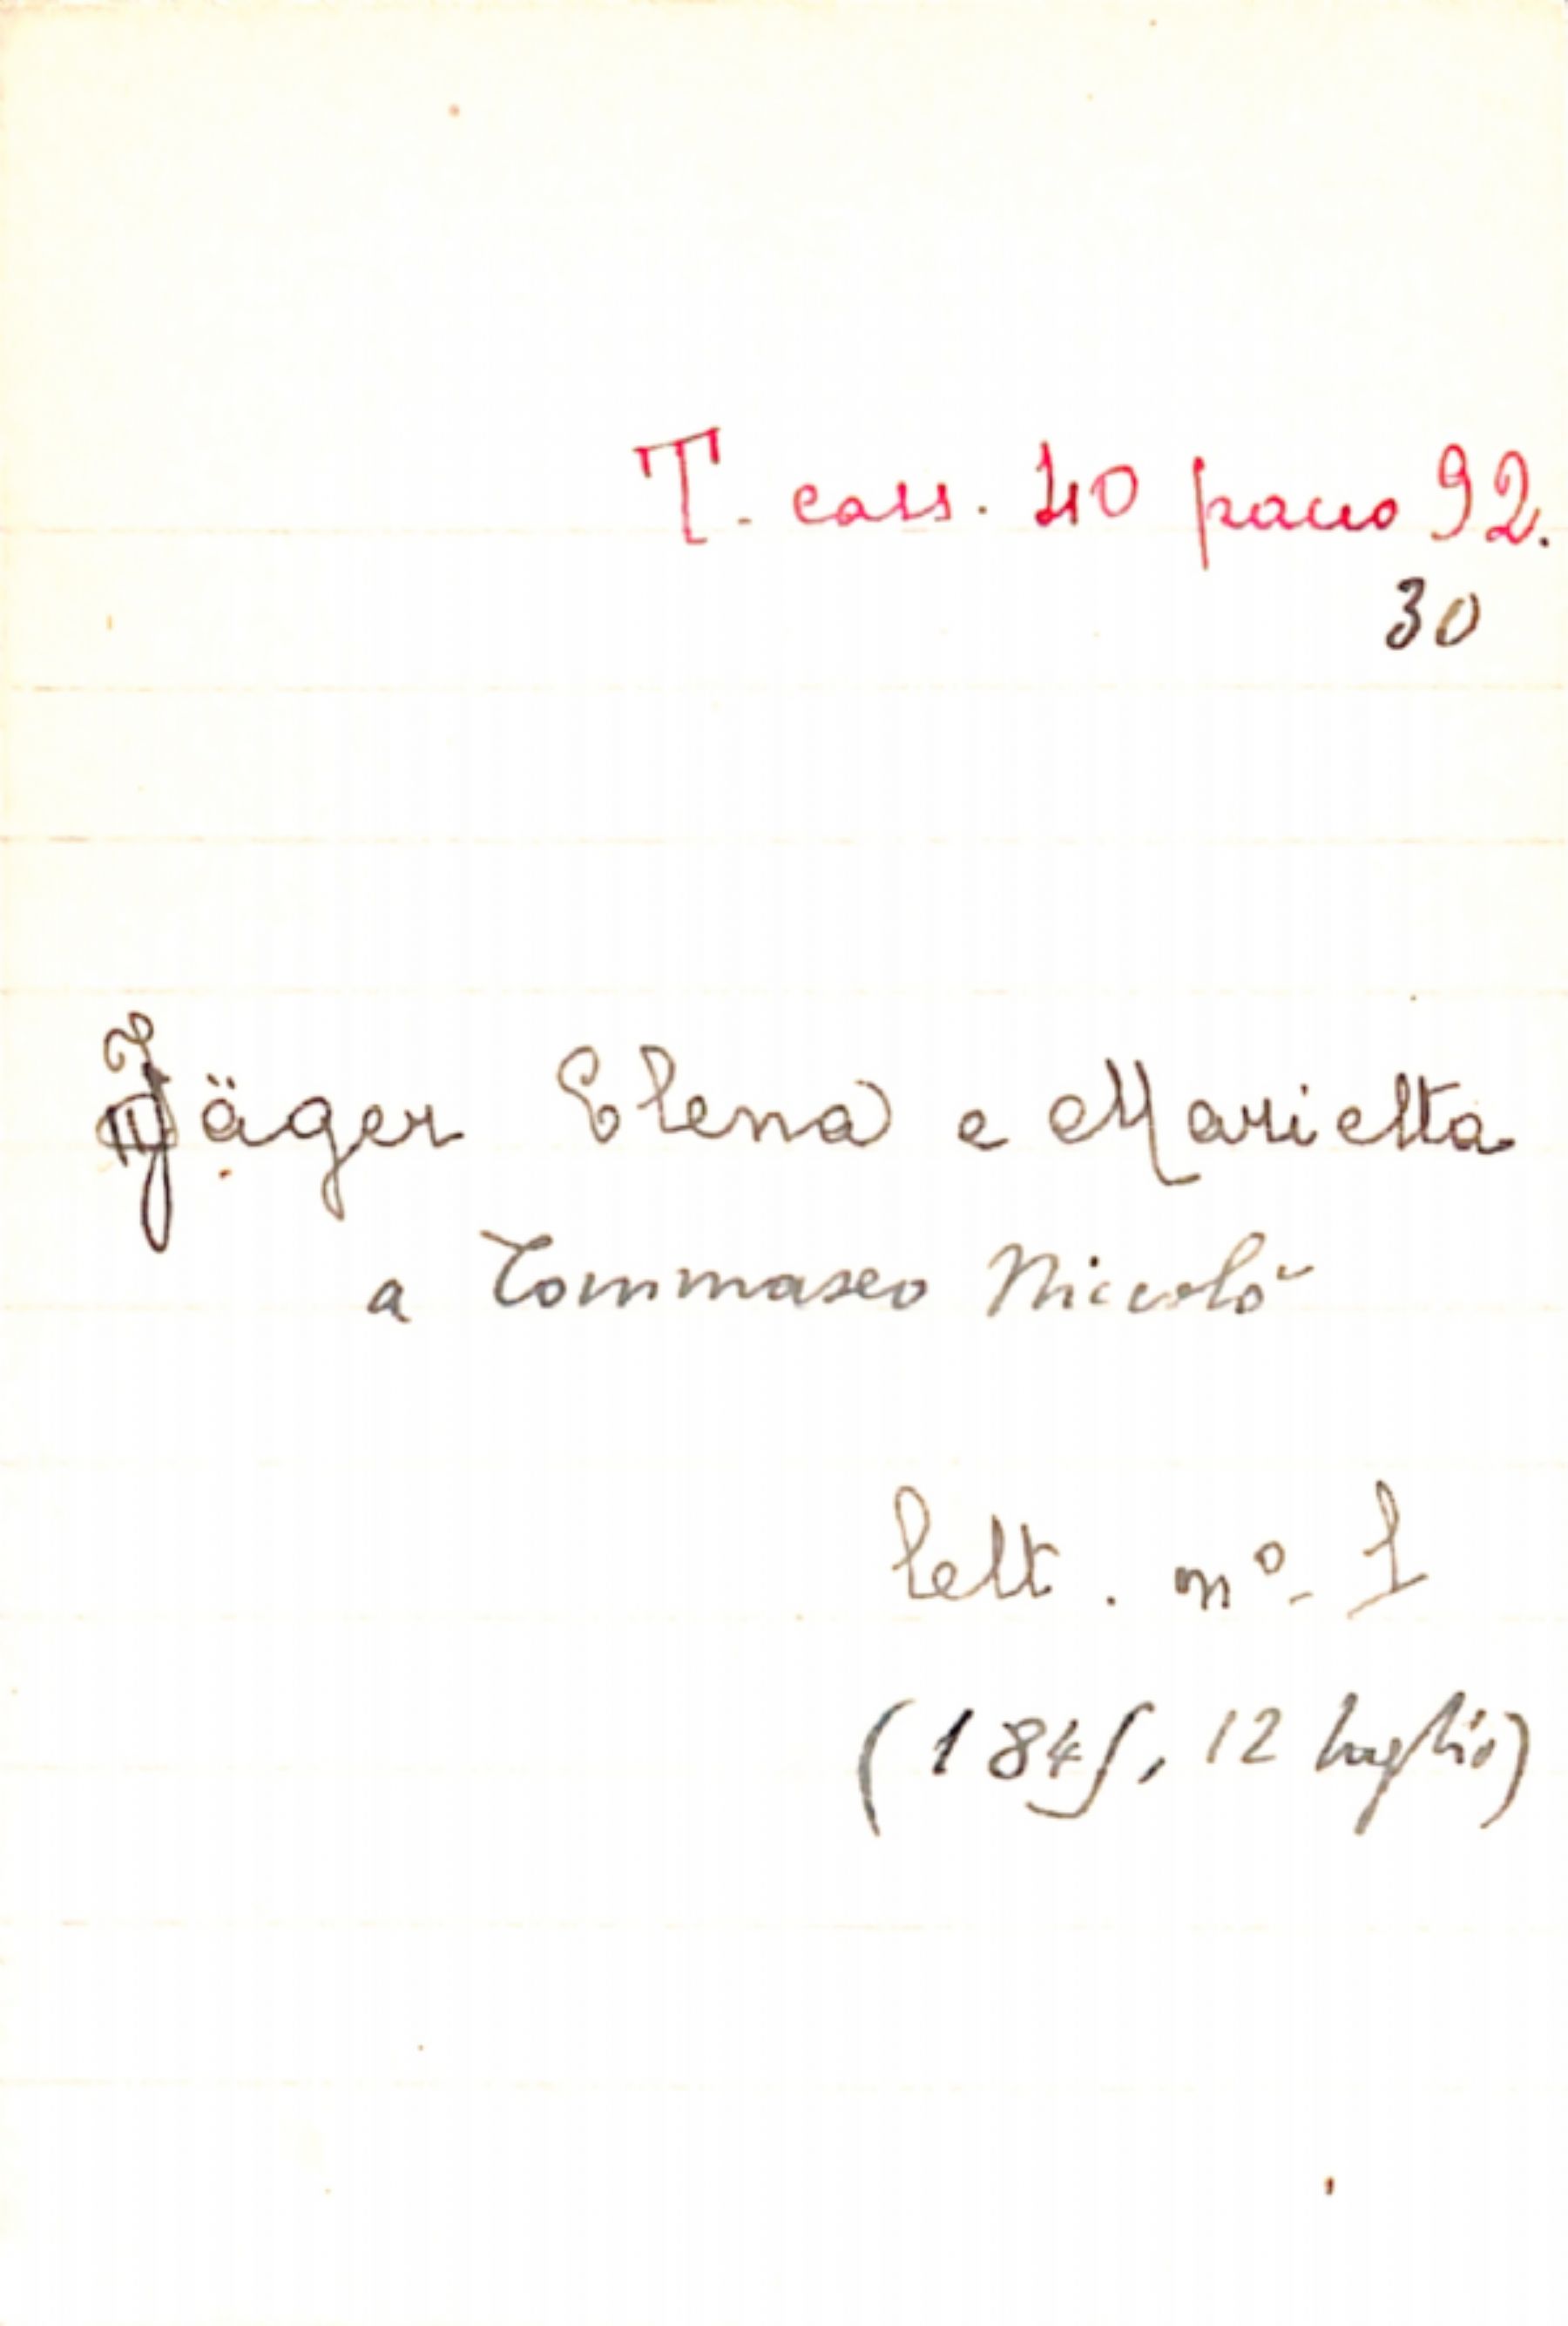 T. cass. 40 pacco 92.
30
Jäger Elena e Marietta
a Tommaseo Niccolò
lett. nº 1
(1845, 12 luglio)